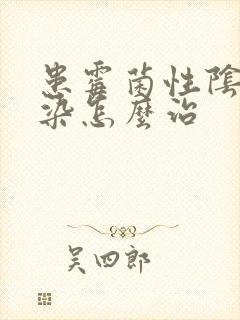 患霉菌性陰
染怎麼治
吴四郎